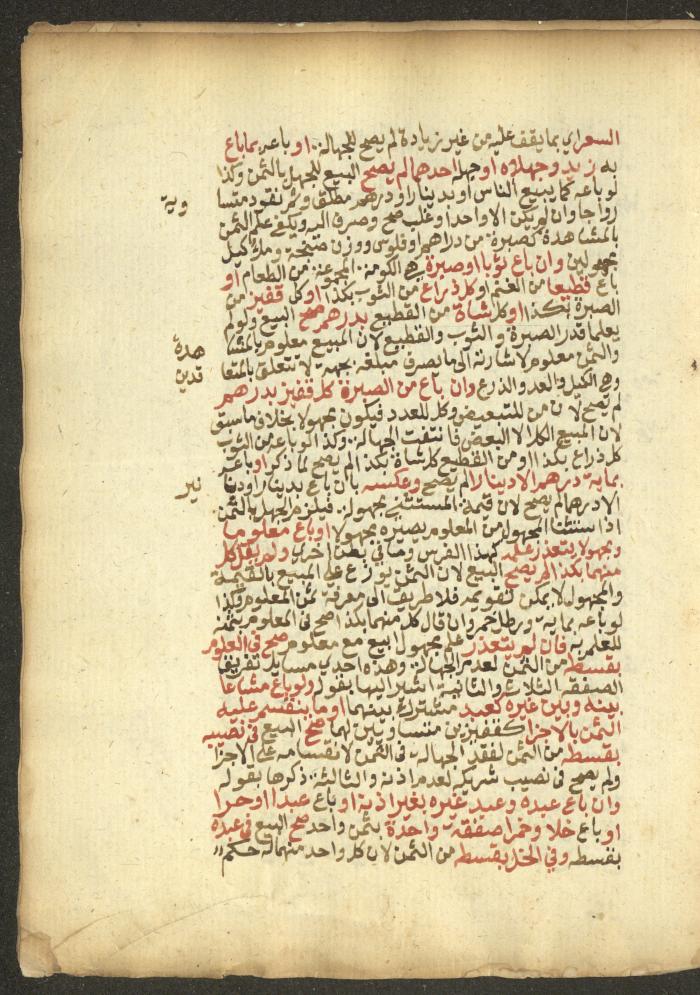 السعر اي بما يقف عليه من غير زيادة لم يصح للجهالة او باعه بما باع
به زيد وجهلاه او جهله احدهما لم يصح البيع للجهل بالثمن وكذا
لو باعه كما يبيع الناس او بدينار او درهم مطلق وثم نقود متسا
وية
رواجا وان لم يكن الا واحد او غلب صح وصرف اليه ويكفي علم الثمن
بالمشاهدة كصبرة من دراهم او فلوس ووزن صنجة وملء كيل
مجهولين وان باع ثوبا او صبرة وهي الكومة المجموعة من الطعام او
باع قطيعا من الغنم او كل ذراع من الثوب بكذا او كل قفيز من
الصبرة بكذا او كل شاة من القطيع بدرهم صح البيع ولو لم
يعلما قدر الصبرة والثوب والقطيع لان المبيع معلوم بالمشا
هدة
والثمن معلوم لاشارته الى ما يعرف مبلغه بجهة لا تتعلق بالمتعا
قدين
وهي الكيل والعد والذرع وان باع من الصبرة كل قفيز بدرهم
لم يصح لان من للتبعيض وكل للعدد فيكون مجهولا بخلاف ما سبق
لان المبيع الكل لا البعض فانتفت الجهالة وكذا لو باعه من الثوب
كل ذراع بكذا او من القطيع كل شاة بكذا لم يصح لما ذكر او باعه
بماية درهم الا دينارا لم يصح وعكسه بان باع بدينار او دنا
نير
الا درهما لم يصح لان قيمة المستثنى مجهولة فيلزم الجهل بالثمن
اذ استثنا المجهول من المعلوم يصيره مجهولا او باع معلوما
ومجهولا يتعذر علمه كهذا الفرس وما في بطن اخرى ولم يقل كل
منهما بكذا لم يصح البيع لان الثمن يوزع على المبيع بالقيمة
والمجهول لا يمكن تقويمه فلا طريق الى معرفة ثمن المعلوم وكذا
لو باعه بماية ورطل خمر وان قال كل منهما بكذا صح في المعلوم بثمنه
للعلم به فان لم يتعذر علم مجهول ابيع مع معلوم صح في المعلوم
بقسطه من الثمن لعدم الجهالة وهذه احدى مسايل تفريق
الصفقة الثلاث والثانية اشير اليها بقوله ولو باع مشاعا
بينه وبين غيره كعبد مشترك بينهما او ما ينقسم عليه
الثمن بالاجزا كقفيزين متساويين لهما صح البيع في نصيبه
بقسطه من الثمن لفقد الجهالة في الثمن لانقسامه على الاجزا
ولم يصح في نصيب شريكه لعدم اذنه والثالثة ذكرها بقوله
وان باع عبده وعبد غيره بغير اذنه او باع عبدا وحرا
او باع خلا وخمرا صفقة واحدة بثمن واحد صح البيع في عبده
بقسطه وفي الخل بقسطه من الثمن لان كل واحد منهما له حكم